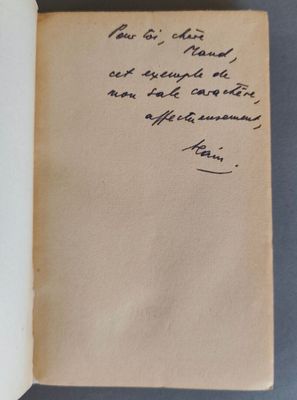 Pour toi, chère
Maud,
cet exemple de
mon sale caractère,
affectueusement,
Alain.